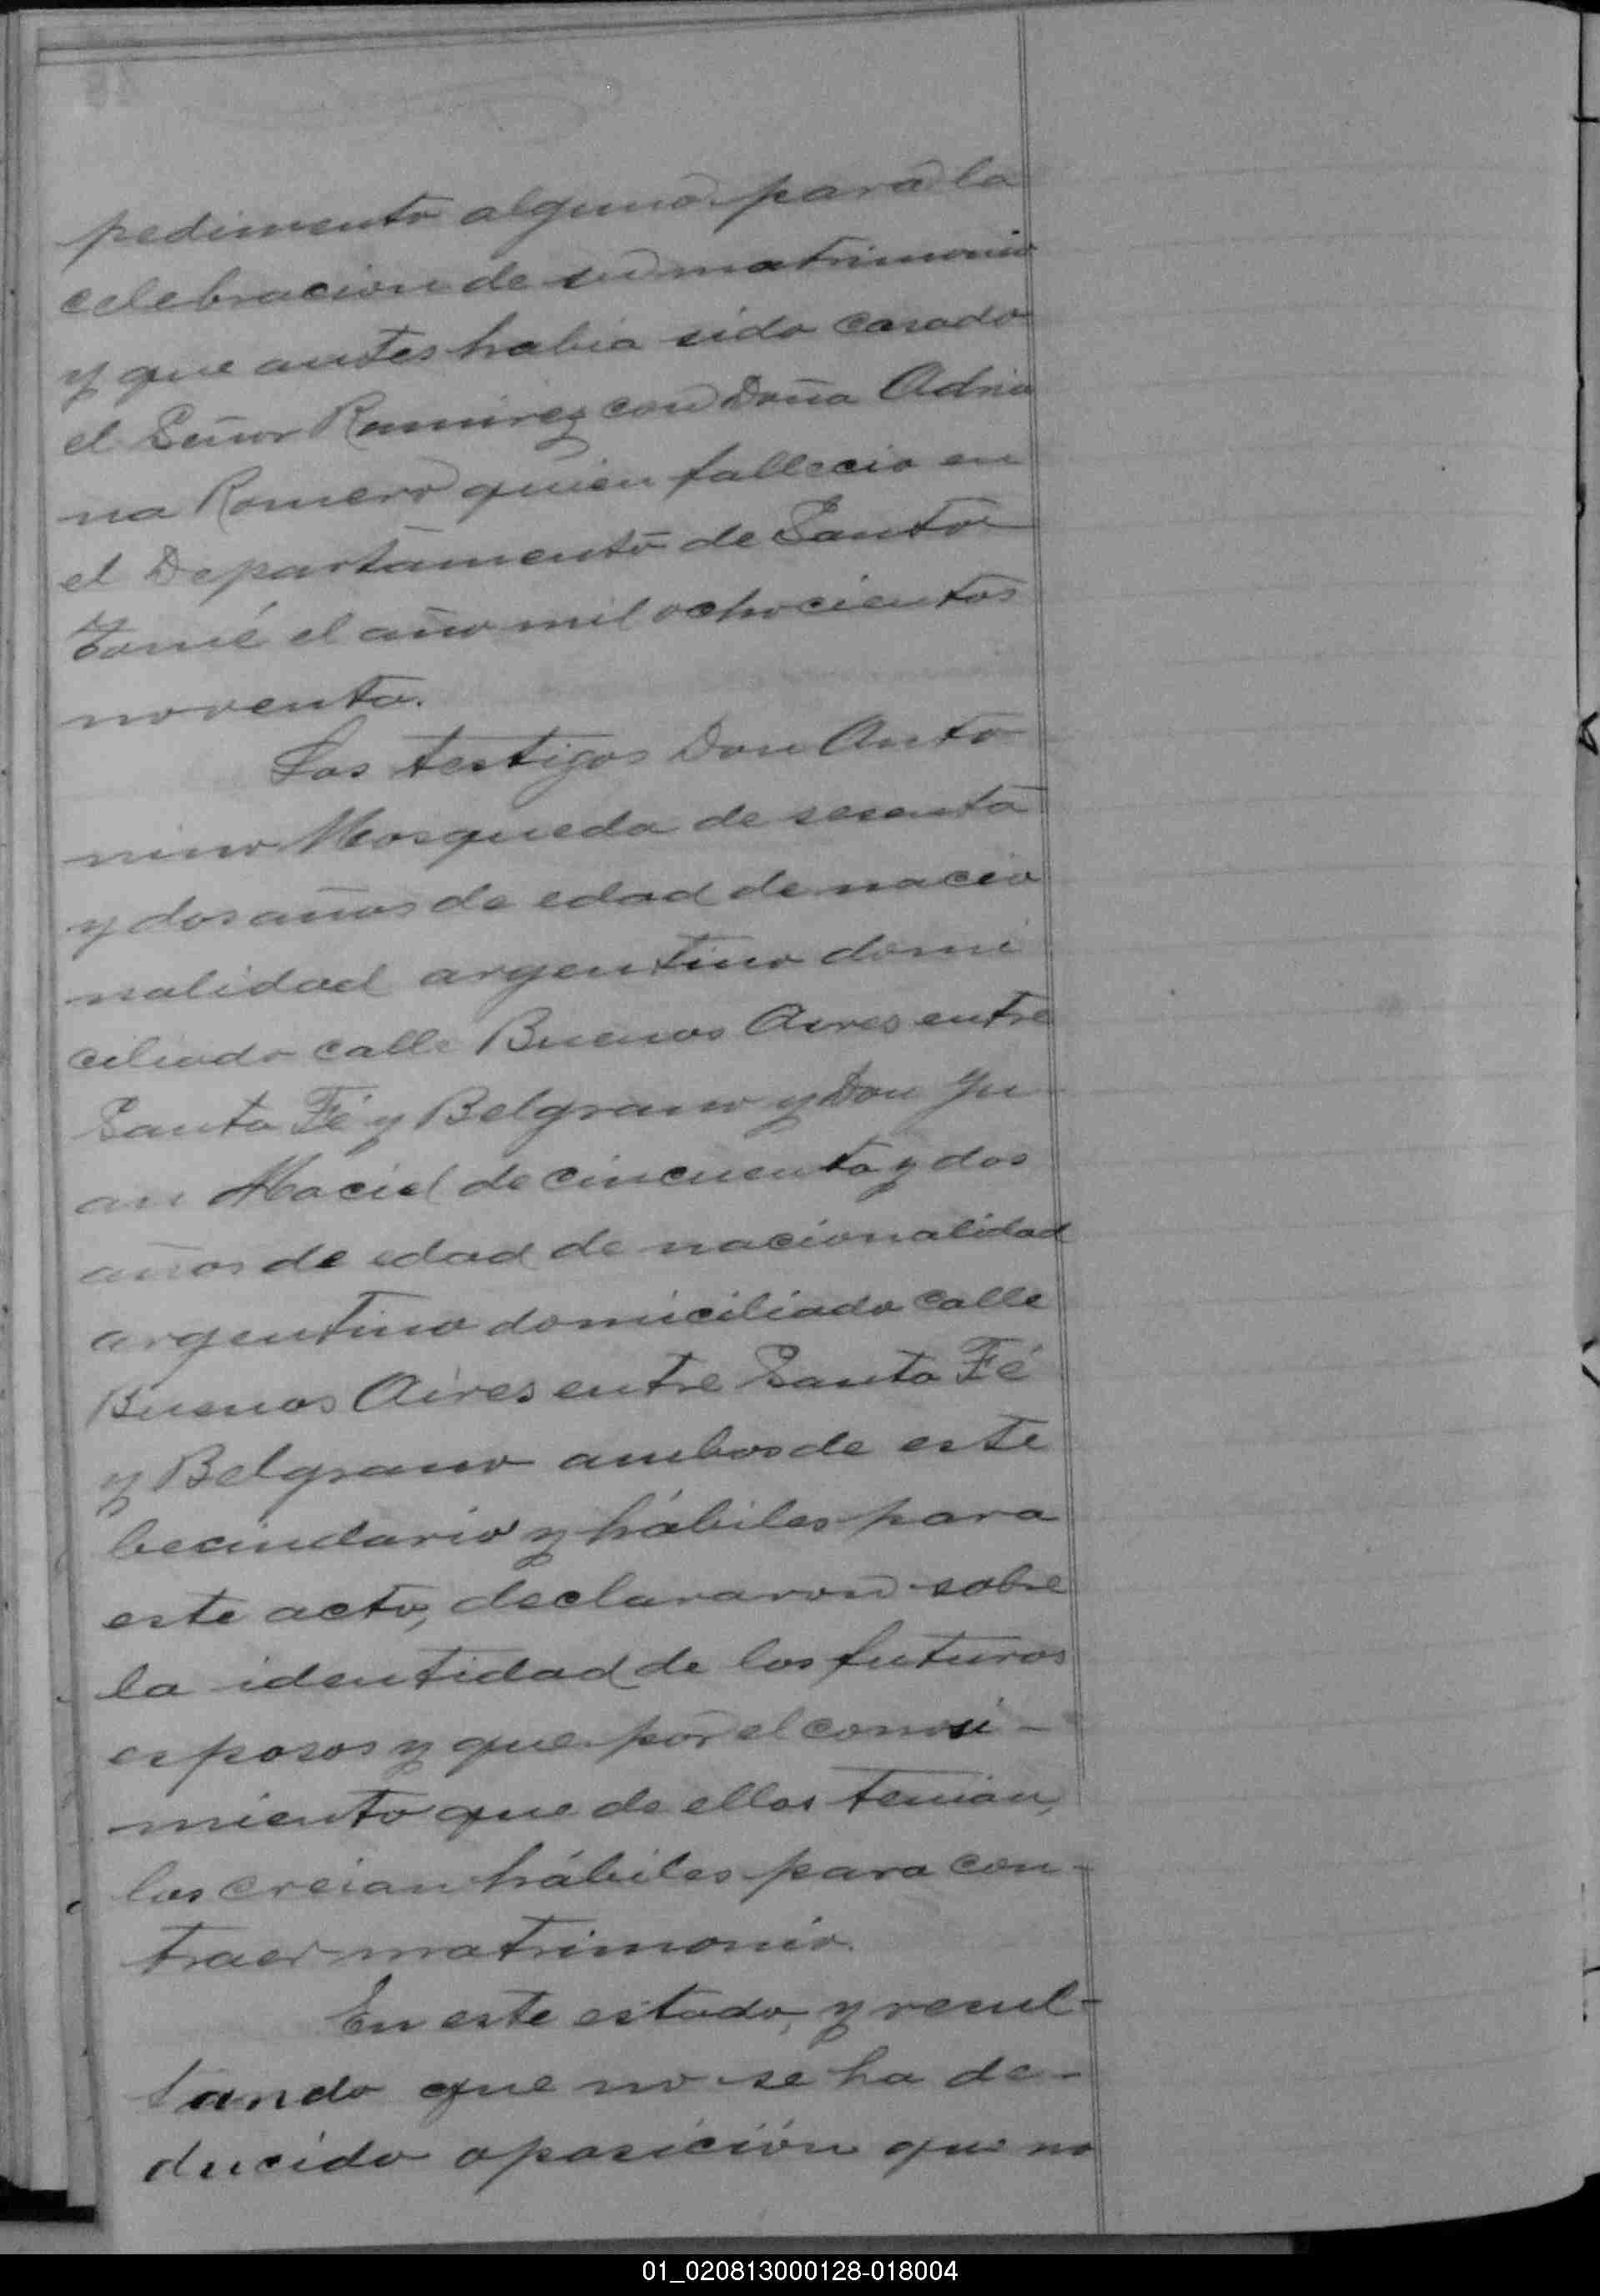 pedimento alguno para la
celebracion de su matrimonio
y que antes habia sido casado
el Señor Ramirez con Doña Adria
na Romero quien fallecio en
el Departamento de Santo
Tomé el año mil ochocientos
noventa.
Los testigos Don Anto
nino Mosqueda de sesenta
y dos años de edad de nacio
nalidad argentino domi
ciliado calle Buenos Aires entre
Santa Fé y Belgrano y Don Ju
an Maciel de cincuenta y dos
años de edad de nacionalidad
argentino domiciliado calle
Buenos Aires entre Santa Fé
y Belgrano ambos de este
becindario y hábiles para
este acto, declararon sobre
la identidad de los futuros
esposos y que por el conosi-
miento que de ellos tenian,
los creian hábiles para con-
traer matrimonio.
En este estado, y resul-
tando que no se ha de-
ducido oposición que no
01_020813000128-018004